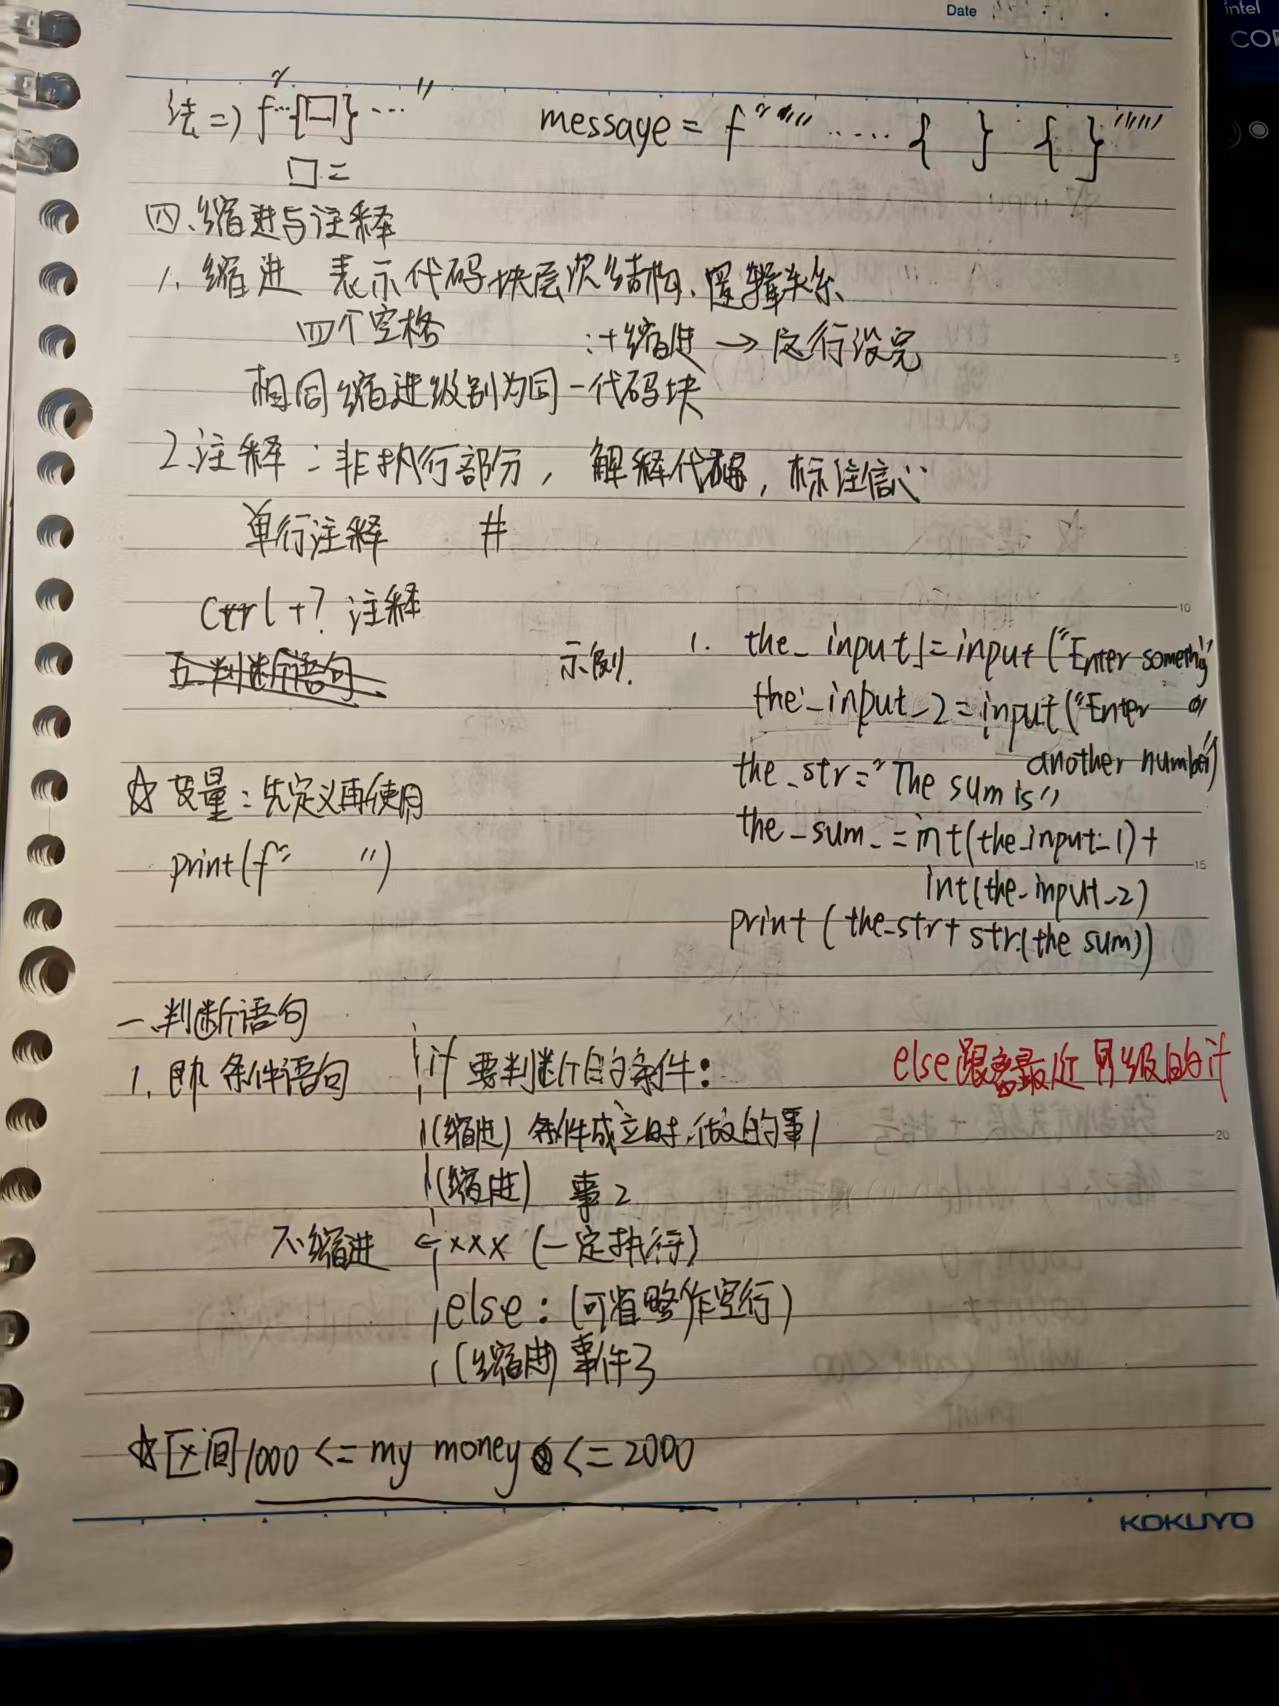 Date
intel
COR
法=) f"…{口}…"    message = f"""…… { } { }"""
口=
四.缩进与注释
1. 缩进 表示代码块层次结构、逻辑关系
四个空格    :+缩进 → 这行没完
相同缩进级别为同一代码块
2.注释:非执行部分, 解释代码, 标注信心
单行注释 #
Ctrl+? 注释
五.判断语句
示例. 1. the_input_1=input("Enter something"
the_input_2=input("Enter
another number")
the_str="The sum is"
the_sum_=int(the_input_1)+
int(the_input_2)
print(the_str+str(the sum))
☆ 变量:先定义再使用
print(f" ")
一.判断语句
1. 即 条件语句    if 要判断的条件:    else跟离最近 同级的if
(缩进) 条件成立时,做的事1
(缩进) 事2
不缩进 ← xxx (一定执行)
else: (可省略作空行)
(缩进) 事件3
☆区间1000 <= my money <= 2000
KOKUYO